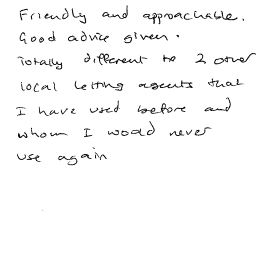 Friendly and approachable.
Good advice given.
Totally different to 2 other
local letting agents that
I have used before and
whom I would never
use again